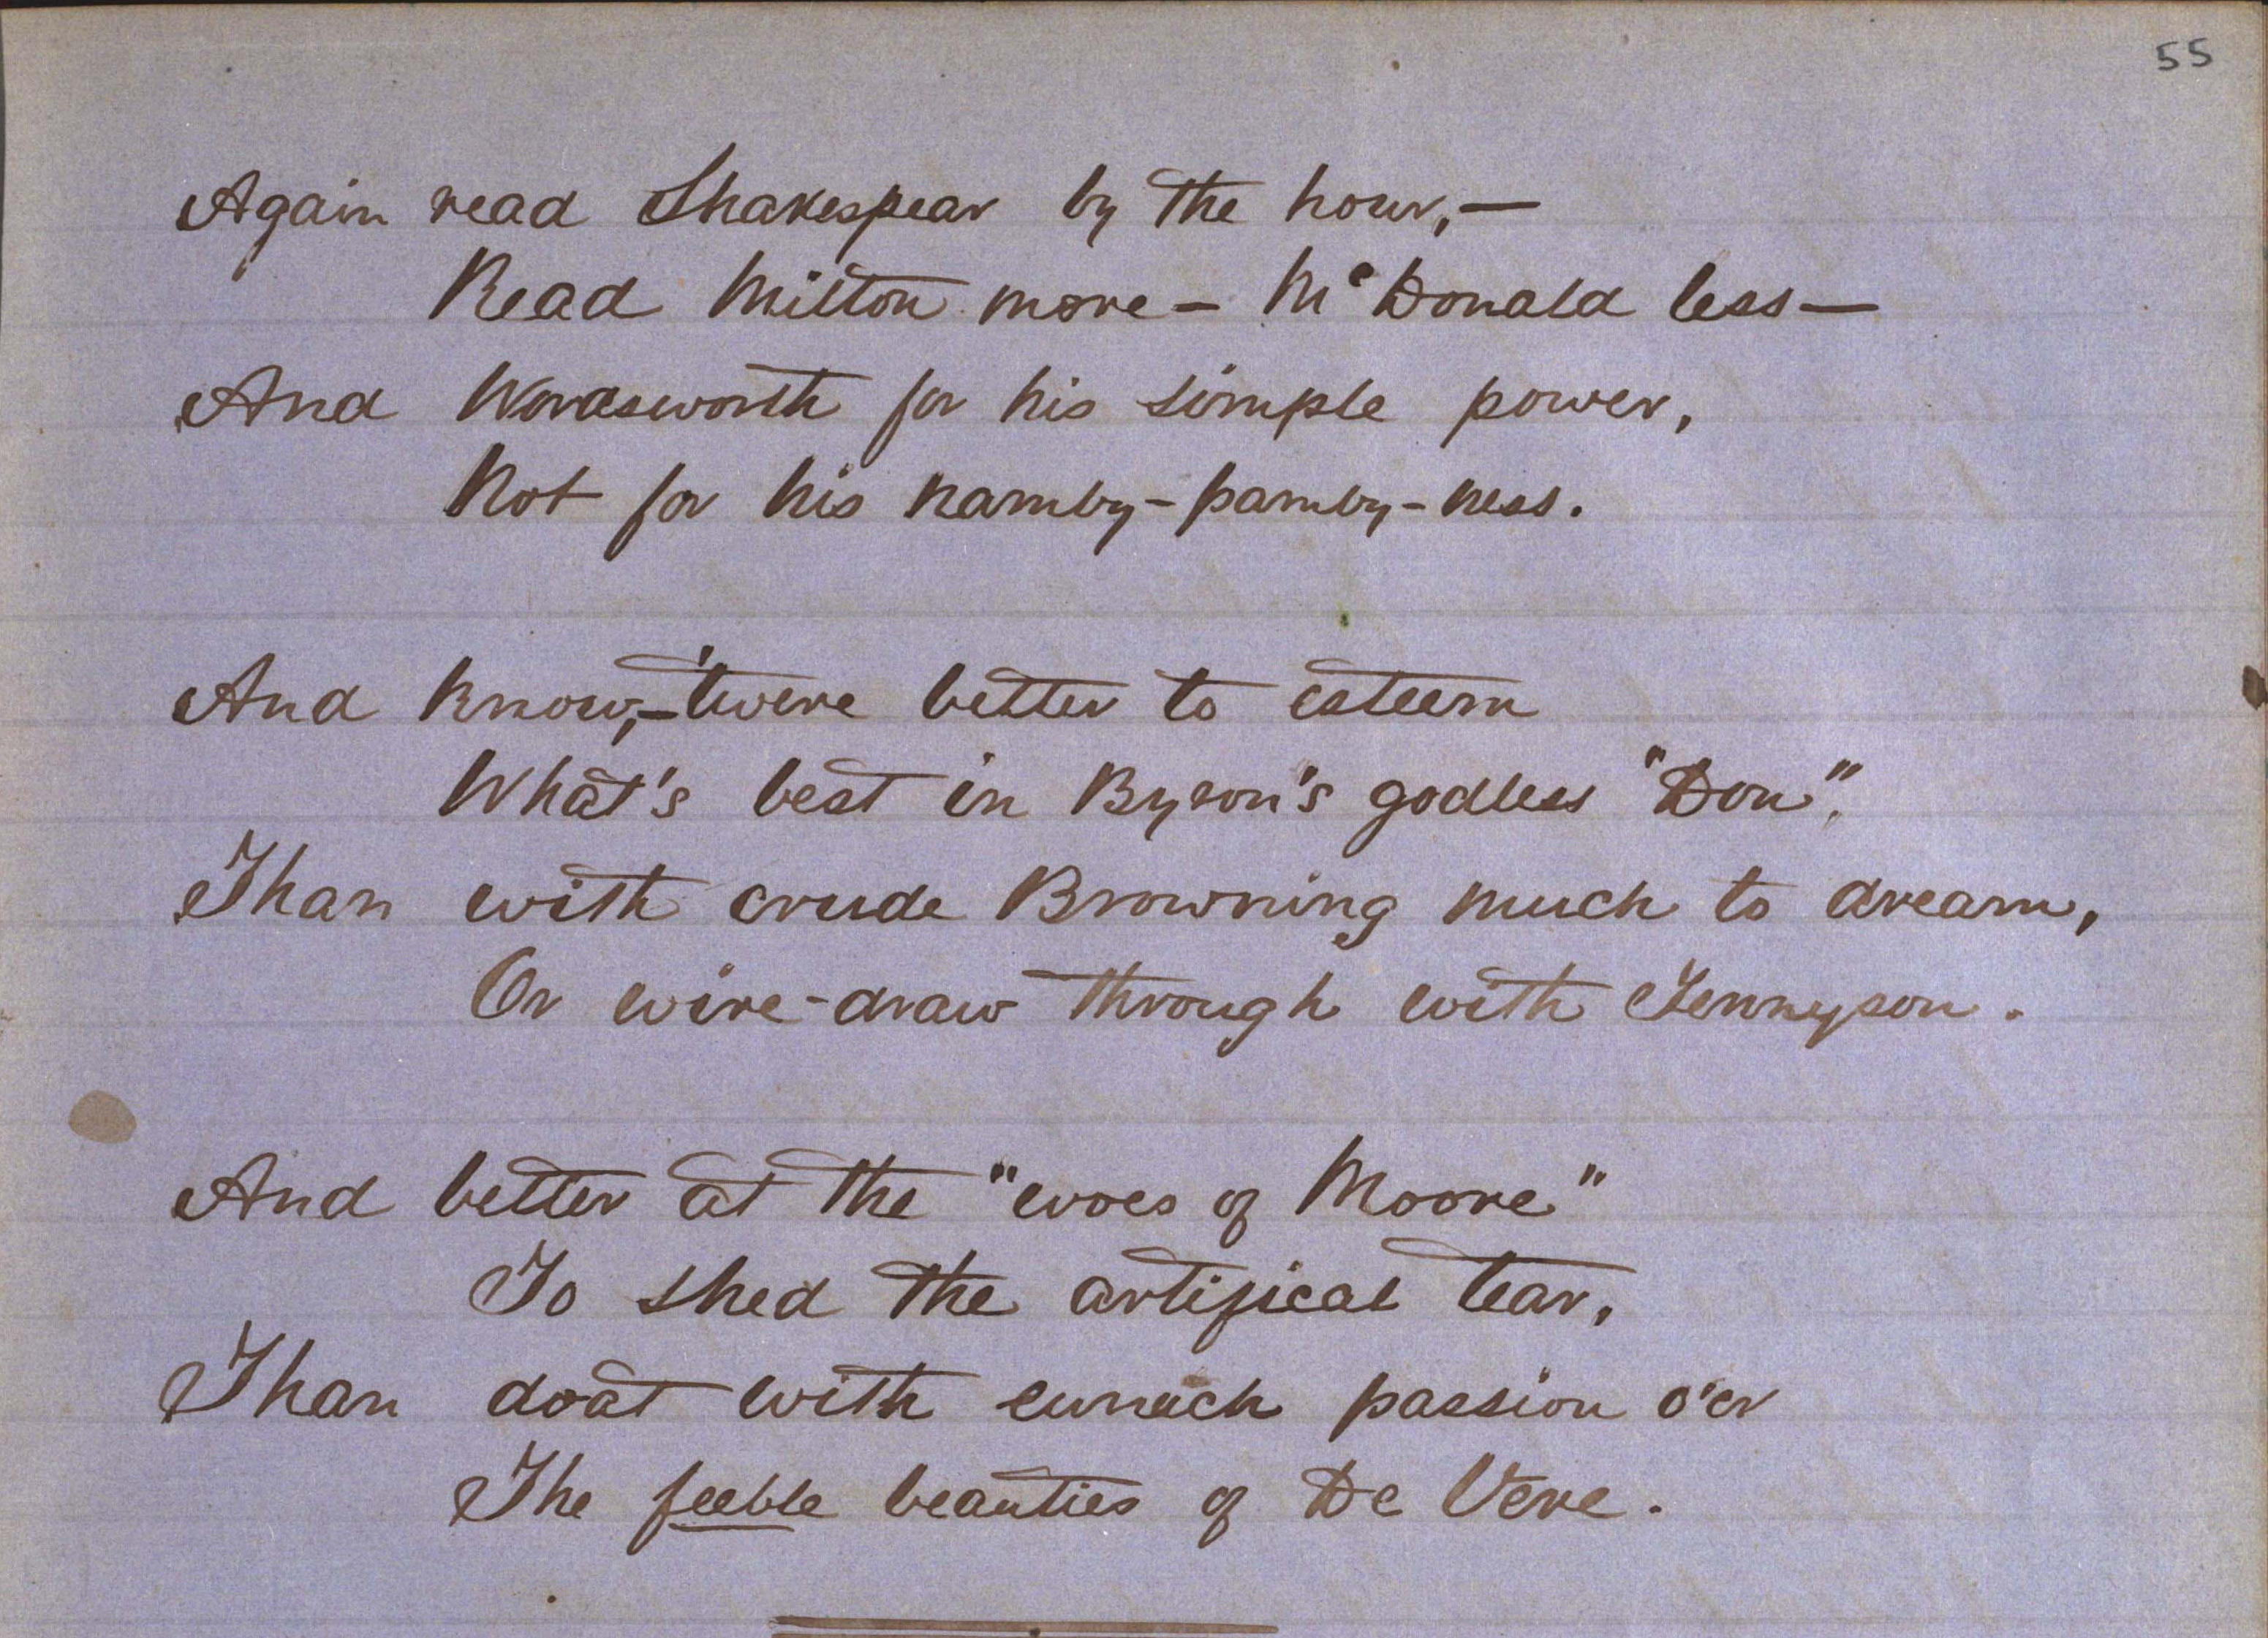 55
Again read Shakespear by the hour,—
Read Milton more — McDonald less —
And Wordsworth for his simple power,
Not for his namby-pamby-ness.
And know,— 'twere better to esteem
What's best in Byron's godless "Don",
Than with crude Browning much to dream,
Or wire-draw through with Tennyson.
And better at the "woes of Moore"
To shed the artifical tear,
Than doat with eunuch passion o'er
The feeble beauties of De Vere.